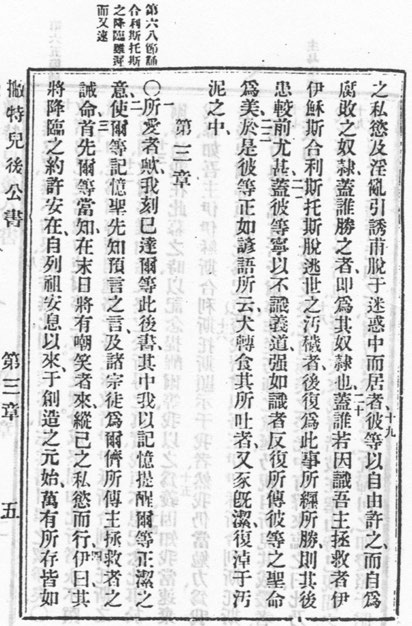 第六八節論
合利斯托斯
之降臨雖遲
而又速
之私慾及淫亂引誘甫脫于迷惑中而居者、十九彼等以自由許之、而自爲
腐敗之奴隸、蓋誰勝之者、卽爲其奴隸也、二十蓋誰若因識吾主拯救者伊
伊穌斯合利斯托斯、脫逃世之污穢者、後復爲此事所纒所勝、則其後
患較前尤甚、二一蓋彼等寧以不識義道、强如識者反復所傳彼等之聖命
爲美、二二於是彼等正如諺語所云、犬轉食其所吐者、又豕旣潔、復淖于污
泥之中、
第三章
〇一所愛者歟、我刻已達爾等此後書、其中我以記憶提醒爾等正潔之
意、二使爾等記憶聖先知預言之言、及諸宗徒爲爾儕所傳主拯救者之
誡命、三首先爾等當知、在末日將有嘲笑者來、縱己之私慾而行、四伊曰、其
將降臨之約許安在、自列祖安息以來、于創造之元始、萬有所存皆如
撇特兒後公書
第三章
五